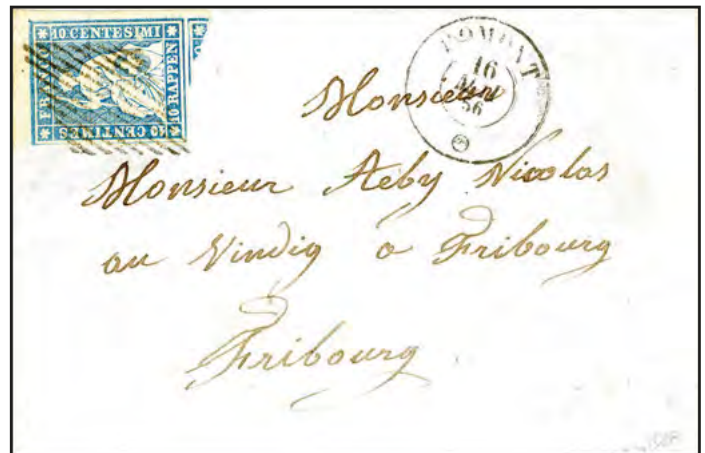 10 CENTESIMI
FRANCO
10 RAPPEN
10 CENTIMES
ROMONT
16
56
Monsieur
Monsieur Aeby Nicolas
au Vindig a Fribourg
Fribourg